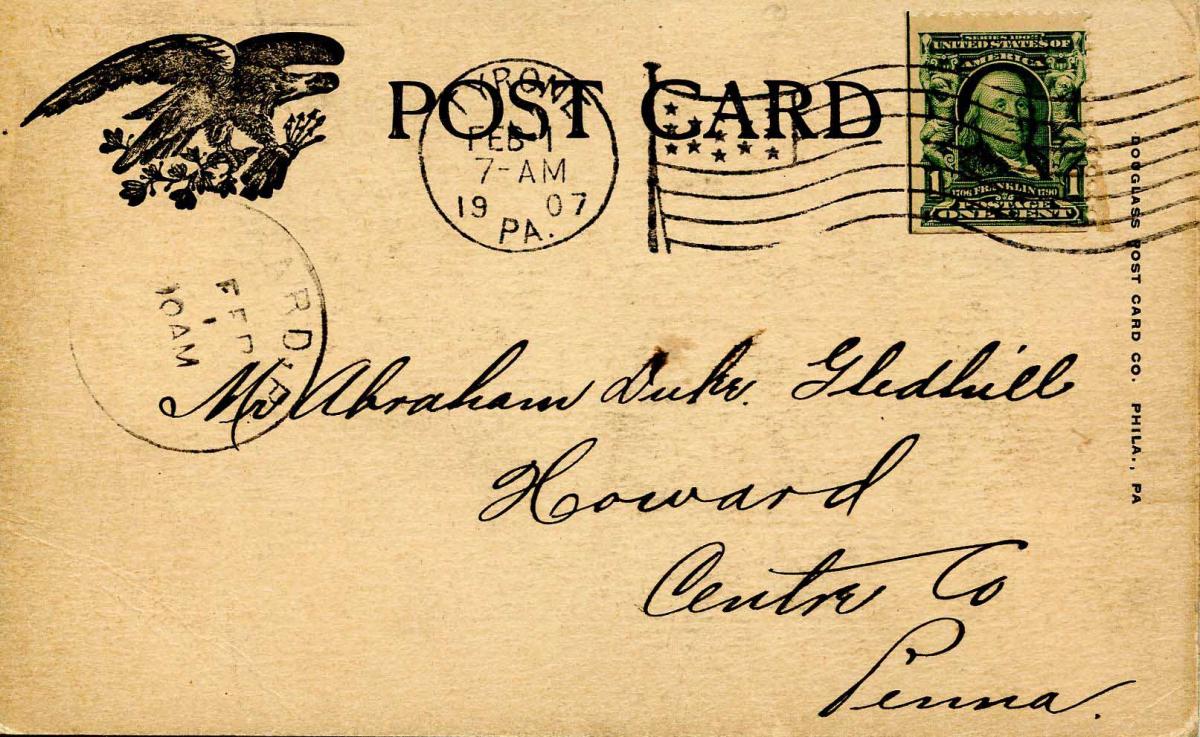 POST CARD
TYRONE
FEB 1
7-AM
19 07
PA.
SERIES 1902
UNITED STATES OF
AMERICA
1 1706 FRANKLIN 1790 1
POSTAGE
ONE CENT
DOUGLASS POST CARD CO. PHILA., PA
ARD
FEB
1
10AM
Mr Abraham Duke. Gledhill
Howard
Centre Co
Penna.